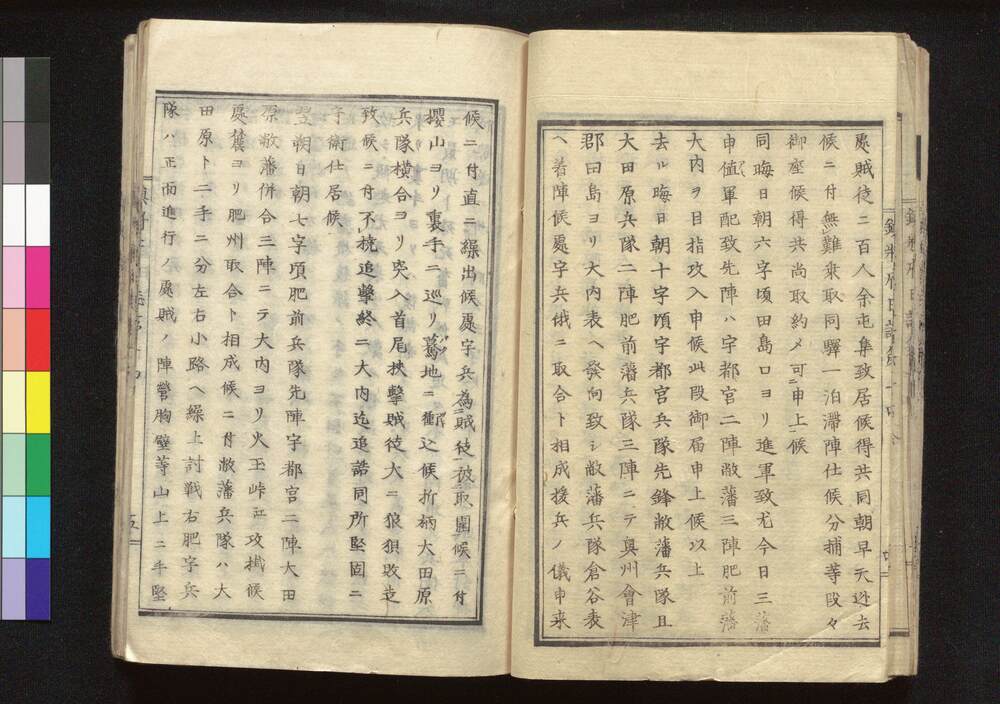 處賊徒二百人余屯集致居候得共同朝早天迯去
候ニ付無難乗取同驛一泊滞陣仕候分捕等段々
御座候得共尚取約メ可申上候
同晦日朝六字頃田島口ヨリ進軍致尤今日三藩
申値軍配致先陣ハ宇都宮二陣敝藩三陣肥前藩
大内ヲ目指攻入申候此段御届申上候以上
去ル晦日朝十字頃宇都宮兵隊先鋒敝藩兵隊且
大田原兵隊二陣肥前藩兵隊三陣ニテ奥州會津
郡田島ヨリ大内表ヘ發向致シ敝藩兵隊倉谷表
ヘ着陣候處宇兵俄ニ取合ト相成援兵ノ儀申来
候ニ付直ニ繰出候處宇兵為賊徒被取圍候ニ付
櫻山ヨリ裏手ニ巡リ驀地ニ衝込候折柄大田原
兵隊横合ヨリ突入首尾挾擊賊徒大ニ狼狽敗走
致候ニ付不撓追擊終ニ大内迄追詰同所堅固ニ
守衛仕居候
翌朔日朝七字頃肥前兵隊先陣宇都宮二陣大田
原敝藩併合三陣ニテ大内ヨリ火玉峠江攻掛候
處麓ヨリ肥州取合ト相成候ニ付敝藩兵隊ハ大
田原ト二手ニ分左右小路ヘ繰上討戦右肥宇兵
隊ハ正面進行ノ處賊ノ陣營胸壁等山上ニ手堅
五